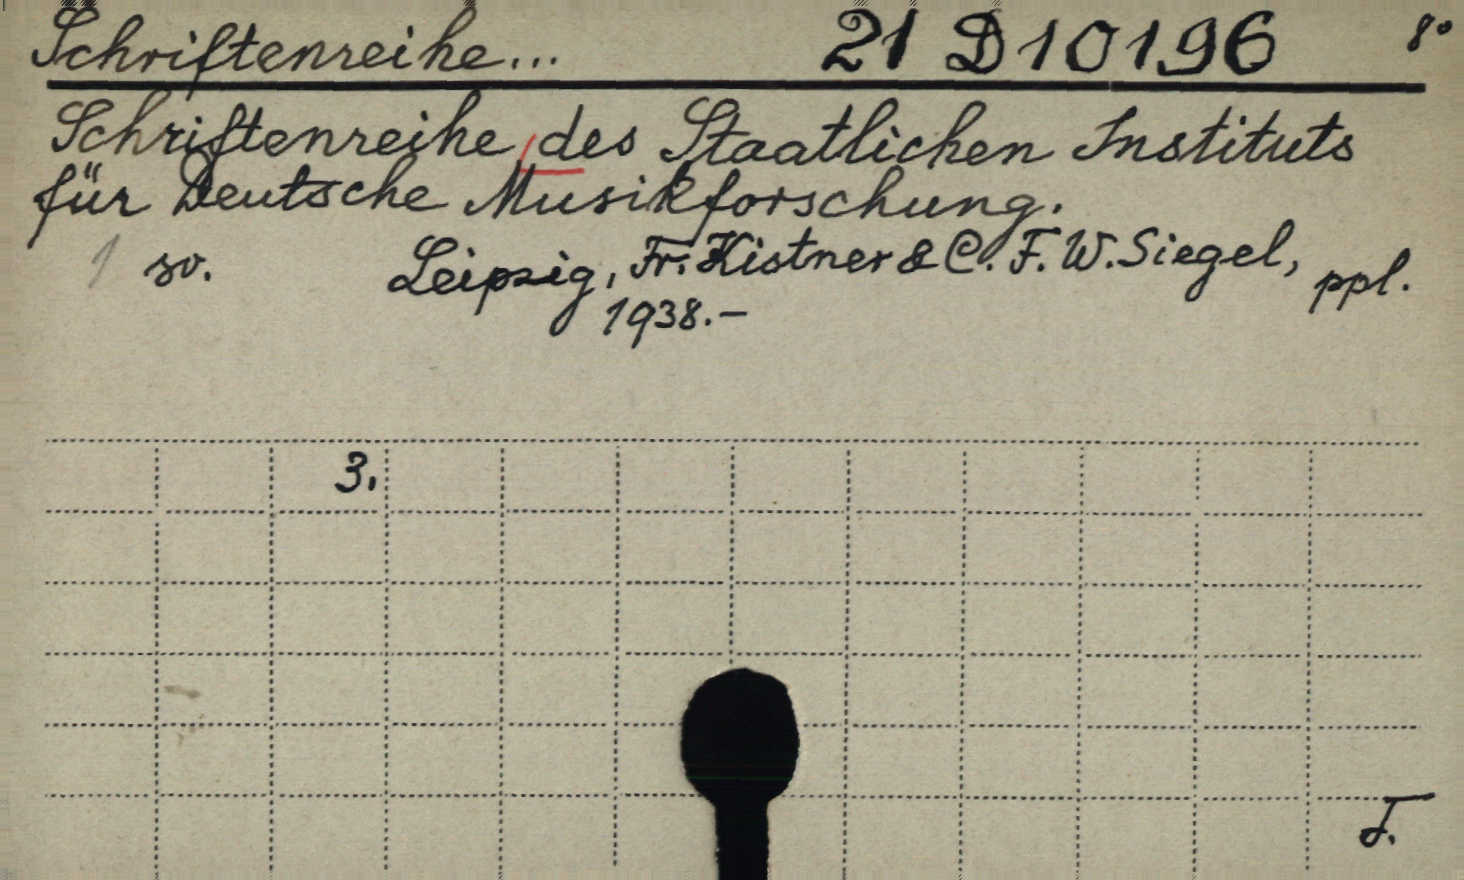 Schriftenreihe... 21 D 10196 8°
Schriftenreihe des Staatlichen Instituts
für Deutsche Musikforschung.
1 sv. Leipzig, Fr. Kistner & C. F. W. Siegel, ppl.
1938.-
3.
J.